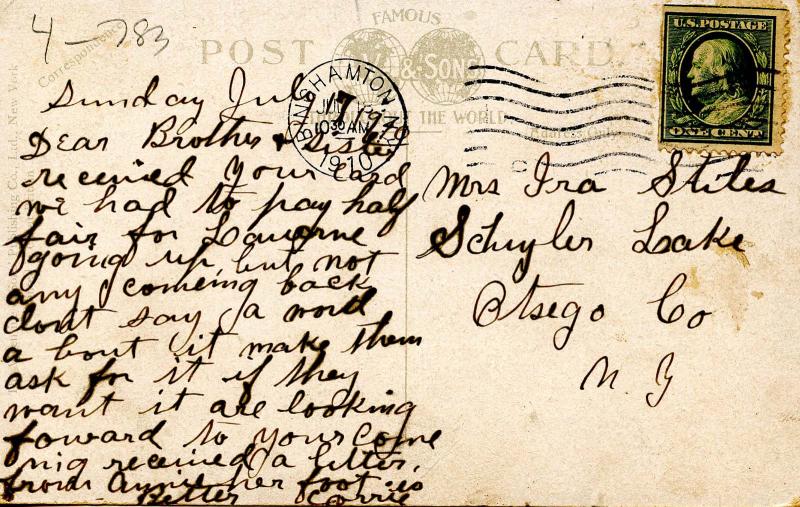 4-783
FAMOUS
POST CARD.
& SONS
THE WORLD
Correspondence
BINGHAMTON
JUL
10 30 AM
1910
U.S. POSTAGE
ONE CENT
Sunday July 1910
Dear Brother & Sister
received your card
we had to pay half
fair for Laverne
going up, but not
any comeing back
dont say a word
a bout it make them
ask for it if they
want it are looking
foward to your come
nig received a letter,
from Annie her foot is
Better Carrie
Mrs Ira Stiles
Schuyler Lake
Otsego Co
N Y